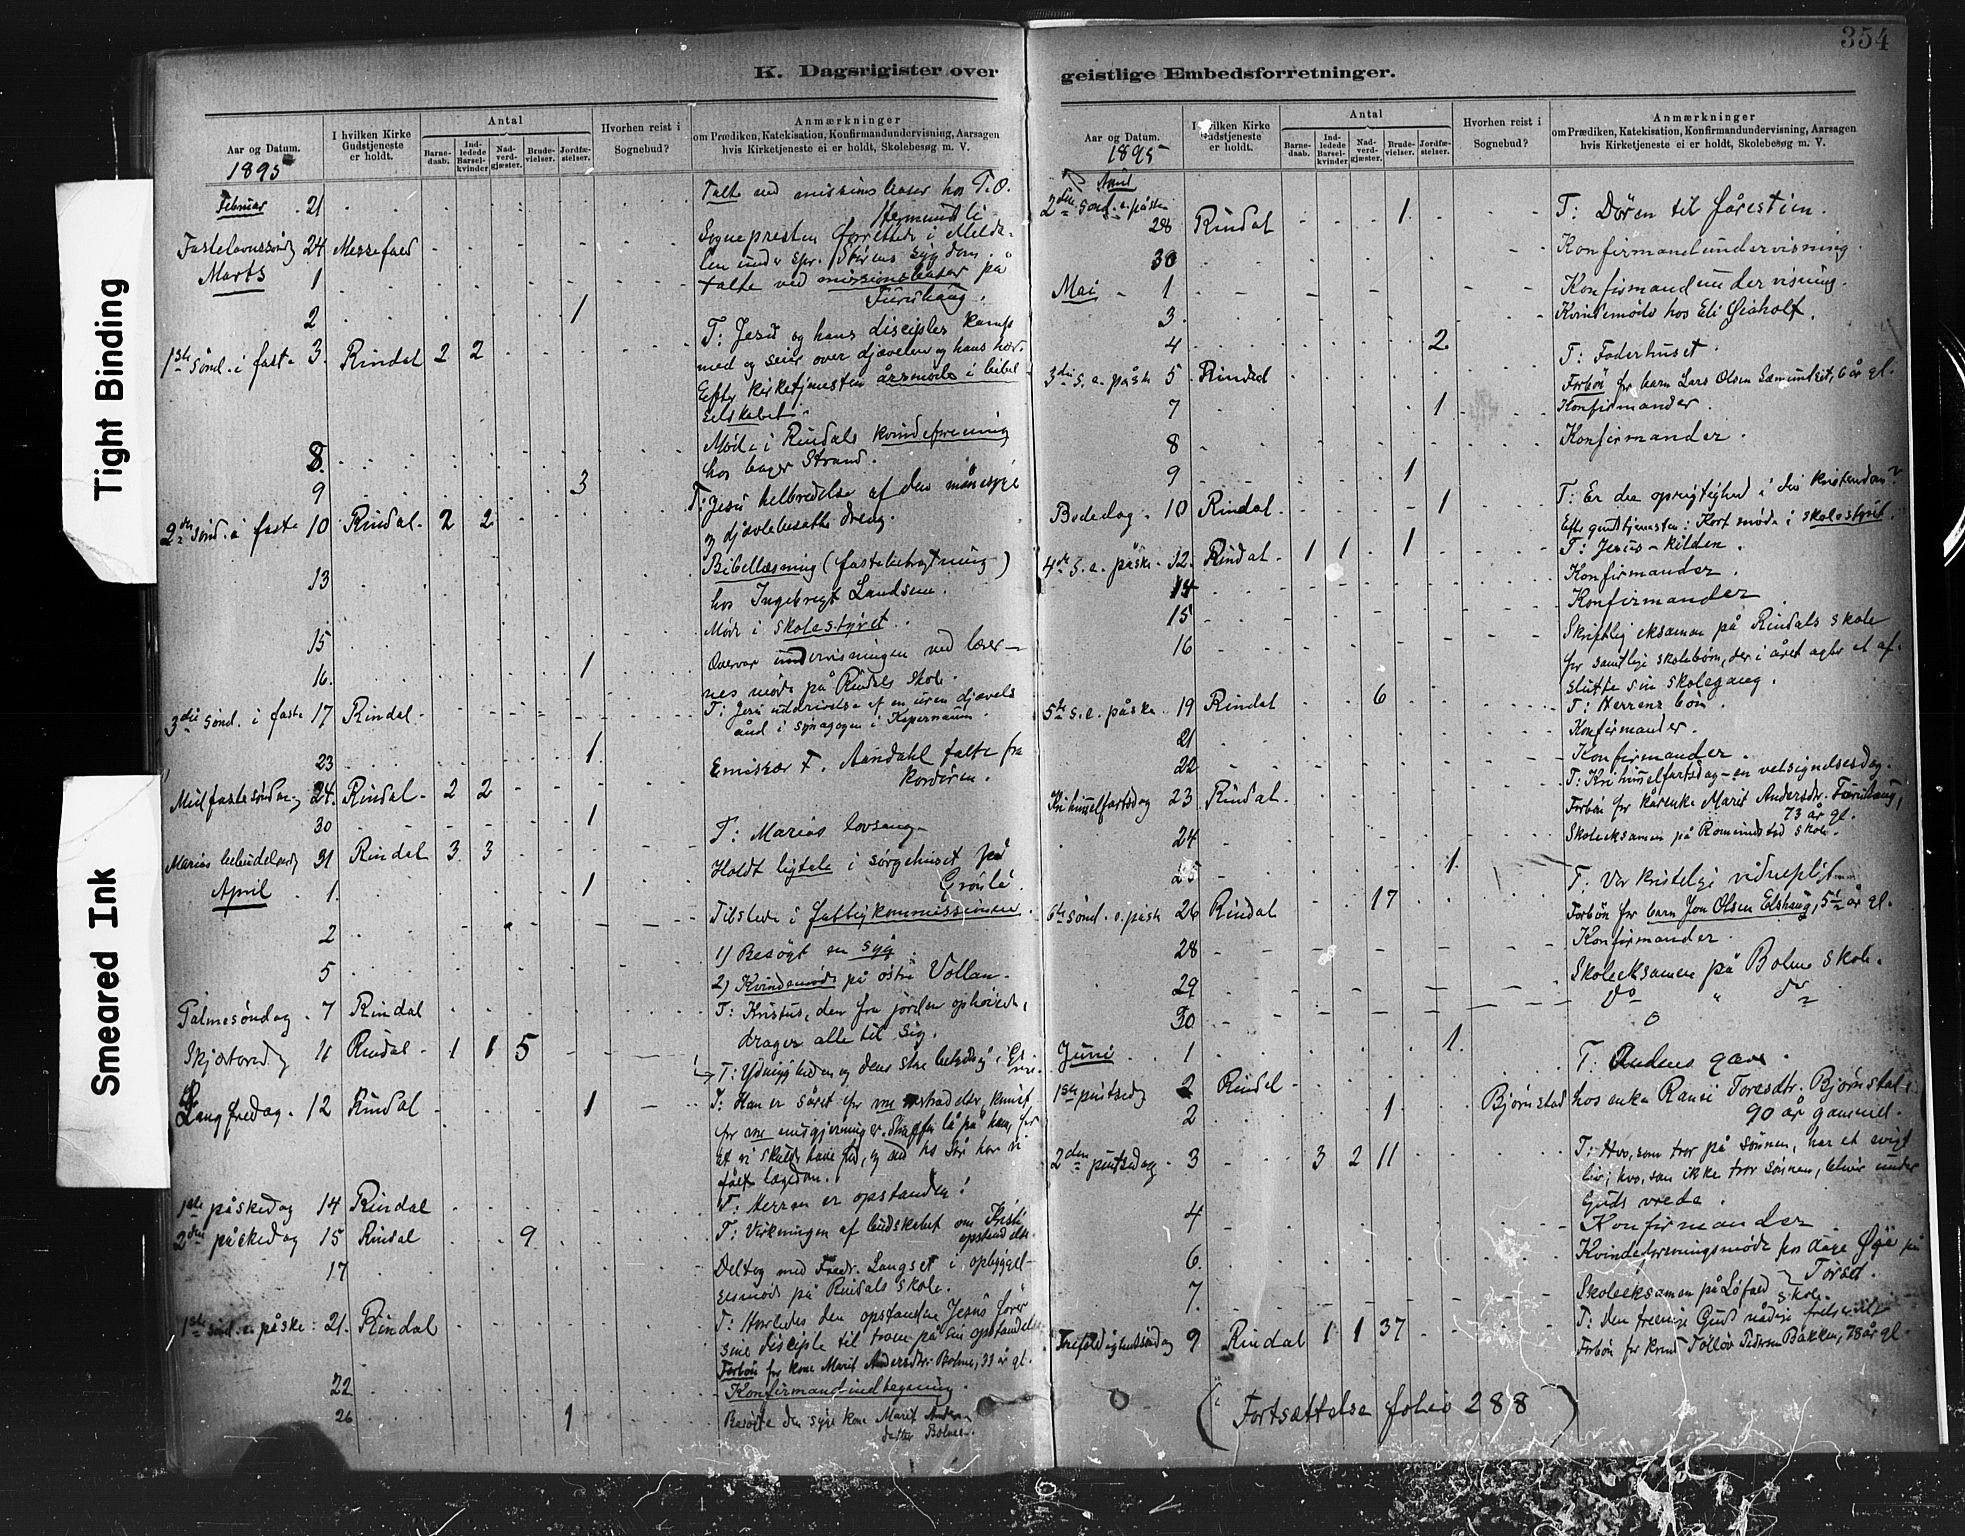 354
K. Dagsrigister over geistlige Embedsforretninger.
Tight Binding
Smeared Ink
Aar og Datum.
1895
I hvilken Kirke Gudstjeneste er holdt.
Antal
Barne-daab.
Ind-ledede Barsel-kvinder
Nad-verd-gjæster.
Brude-vielser.
Jordfæ-stelser.
Hvorhen reist i Sognebud?
Anmærkninger
om Prædiken, Katekisation, Konfirmandundervisning, Aarsagen
hvis Kirketjeneste ei er holdt, Skolebesøg m. V.
Februar 21 Talte ved missionsleaser hos T. O.
Fastelavnssøndag 24 Messefald Sognepresten forrettede i
Marts 1 talte ved missionsleaser på
2 1
1ste sønd. i faste 3. Rindal 2 2 T: Jesu og hans disciples kamp
med og seier over djævelen og hans hær.
Efter kirketjenesten årsmøde i bibel-
selskabet.
8 Møde i Rindals kvindeforening
hos Strand.
9 3
2den sønd. i faste 10 Rindal 2 2 T: Jesu helbredelse af den månesyge
og djævlebesatte dreng.
13 Bibellæsning (fastebetragtning)
hos Ingebrigt Landsem.
15 Møde i skolestyret.
16. 1 Overvar undervisningen ved lærer-
nes møde på Rindals skole.
3die sønd. i faste 17 Rindal T: Jesu uddrivelse af en uren djævels
ånd i synagogen i Kapernaum.
23 1
Midfastesøndag 24. Rindal 2 2 Emissær F. Aandahl talte fra
kordøren.
30 1
Mariæ bebudelsesdag 31 Rindal 3 3 T: Marias lovsang
April 1. 1 Holdt ligtale i sørgehuset på
2 Tilstede i fattigkommissionen.
5 1) Besøgt en syg.
2) Kvindemøde på østre Vollan.
Palmesøndag 7 Rindal T: Kristus, den fra jorden ophøiede,
drager alle til sig.
Skjærtorsdag 11 Rindal 1 1 5 T: Ydmygheden og dens
Langfredag 12 Rindal 1 T: Han er såret for vore overtrædelser, knust
for vore misgjerninger. Straffen lå på ham, for
at vi skulde have fred, og ved hs sår har vi
fået lægedom.
1ste påskedag 14 Rindal T: Herren er opstanden!
2den påskedag 15 Rindal 9 T: Virkningen af budskabet om Kristi
opstandelse
17 Deltog med Fredr. Langset i opbyggel-
sesmøde på Rindals skole.
1ste sønd. e. påske 21. Rindal T: Hvorledes den opstandne Jesus fører
sine disciple til troen på sin opstandelse
Forbøn for kone Marit Andersdtr. Bolme, 33 år gl.
22 Konfirmand-indtegning.
26 1 Besøgte den syge kone Marit Anders-
datter Bolme.
Aar og Datum.
1895
I hvilken Kirke Gudstjeneste er holdt.
Antal
Barne-daab.
Ind-ledede Barsel-kvinder
Nad-verd-gjæster.
Brude-vielser.
Jordfæ-stelser.
Hvorhen reist i Sognebud?
Anmærkninger
om Prædiken, Katekisation, Konfirmandundervisning, Aarsagen
hvis Kirketjeneste ei er holdt, Skolebesøg m. V.
April
2den sønd. e. påske 28 Rindal 1 T: Døren til fårestien.
30 Konfirmandundervisning.
Mai 1 Konfirmandundervisning.
3. Kvindemøde hos Eli
4 2
3die s. e. påske 5 Rindal T: Faderhuset.
Forbøn for barn Lars Olsen 6 år gl.
7 1 Konfirmander.
8 Konfirmander.
9 1
Bededag 10 Rindal 1 T: Er der oprigtighed i din kristendom?
Efter gudstjenesten: Kort møde i skolestyret.
4de s. e. påske 12. Rindal 1 1 1 T: Jesus-kilden.
14 Konfirmander.
15 Konfirmander
16 Skriftlig eksamen på Rindals skole
for samtlige skolebørn, der i året agter at af-
slutte sin skolegang.
5te s. e. påske 19 Rindal 6 T: Herrens bøn.
21 Konfirmander.
22 Konfirmander.
Kri himmelfartsdag 23 Rindal T: Kri himmelfartsdag – en velsignelsesdag.
Forbøn for kårenke Marit Andersdtr. Furuhaug,
73 år gl.
24 Skoleeksamen på Romundstad skole.
25 1.
6te sønd. e. påske 26 Rindal 17 T: Vor kristelige vidnepligt
Forbøn for barn Jon Olsen Elshaug, 5½ år gl.
28 Konfirmander.
29 Skoleeksamen på Bolme skole.
30 do " do
Juni 1 1.
1ste pintsedag 2 Rindal T: Åndens gave.
2 1 Bjørnstad hos enke Ranei Toresdtr. Bjørnstad,
90 år gammel.
2den pintsedag 3 3 2 11 T: Hvo, som tror på sønnen, har et evigt
liv; hvo, som ikke tror sønnen, bliver under
Guds vrede.
4 Konfirmander
6. Kvindeforeningsmøde hos Øye på
7. Skoleeksamen på Løfald skole.
Trefoldighedssøndag 9 Rindal 1 1 37 T: Den treenige Guds nådige frelsesvilje
Forbøn for Tollöv Pedersen Bakken, 78 år gl.
(Fortsættelse folio 288)